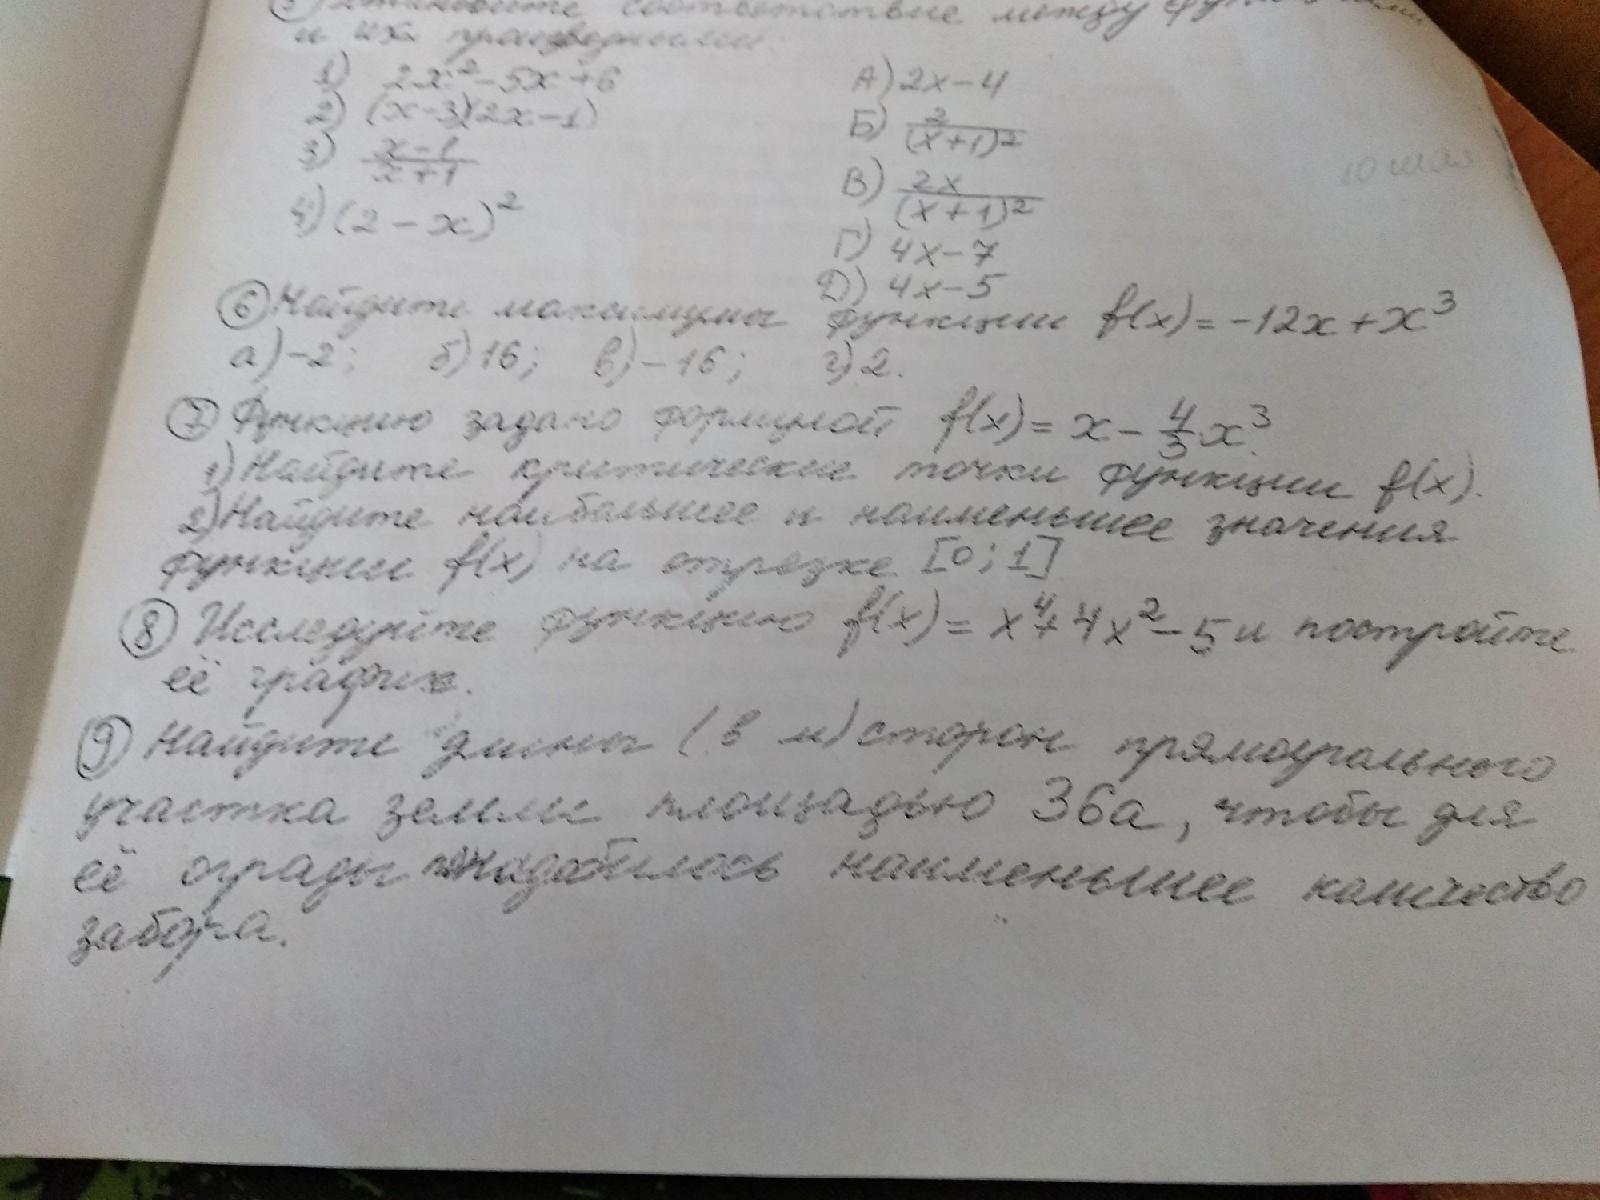 5) Установите соответствие между функциями
и их производными:
1) 2x² - 5x + 6 А) 2x - 4
2) (x-3)(2x-1) Б) 2/(x+1)²
3) x-1/x+1 В) 2x/(x+1)²
4) (2-x)² Г) 4x-7
Д) 4x-5
10 мая
6 Найдите максимумы функции f(x) = -12x + x³
а) -2; б) 16; в) -16; г) 2.
7 Функцию задано формулой f(x) = x - 4/3 x³.
1) Найдите критические точки функции f(x).
2) Найдите наибольшее и наименьшее значения
функции f(x) на отрезке [0; 1]
8 Исследуйте функцию f(x) = x⁴ + 4x² - 5 и постройте
её график.
9 Найдите длины (в м) сторон прямоугольного
участка земли площадью 36а, чтобы для
её ограды понадобилось наименьшее количество
забора.